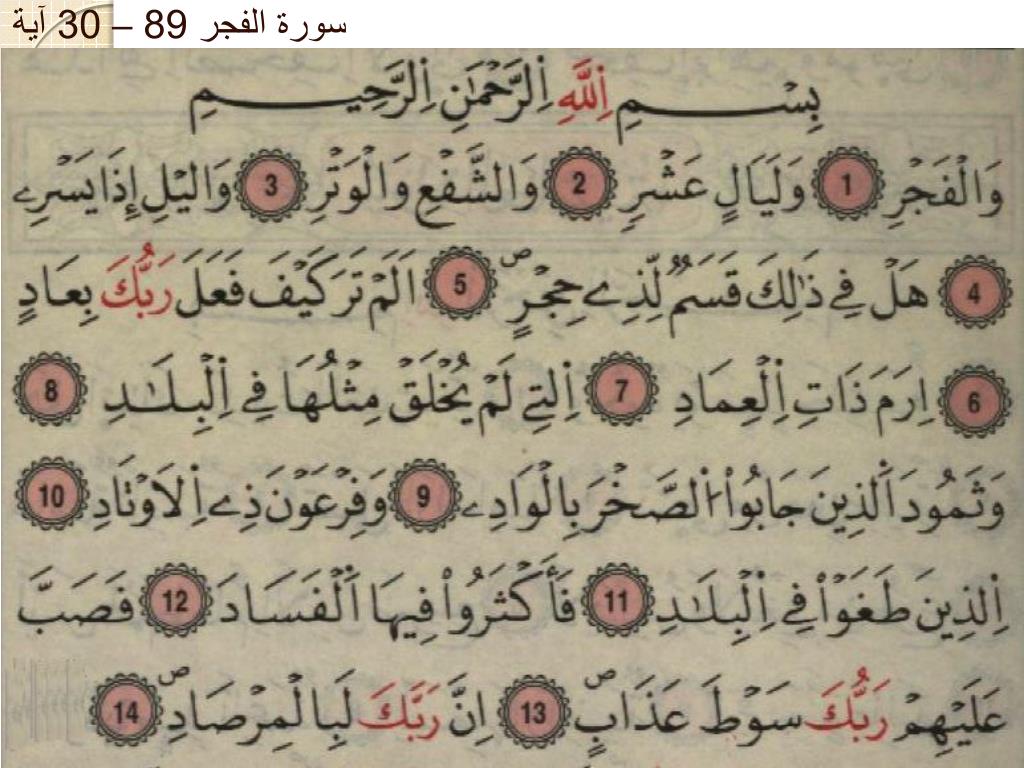 سورة الفجر 89 – 30 آية
بِسْمِ اِللَّهِ اِلرَّحْمَٰنِ اِلرَّحِيمِ
وَالْفَجْرِ 1 وَلَيَالٍ عَشْرٍ 2 وَالشَّفْعِ وَالْوَتْرِ 3 وَاليْلِ إِذَا يَسْرِۦ
4 هَلْ فِي ذَٰلِكَ قَسَمٌ لِّذِي حِجْرٍ ص 5 اَلَمْ تَرَ كَيْفَ فَعَلَ رَبُّكَ بِعَادٍ
6 اِرَمَ ذَاتِ اِلْعِمَادِ 7 اِلتِي لَمْ يُخْلَقْ مِثْلُهَا فِي اِلْبِلَٰدِ 8
وَثَمُودَ اَلذِينَ جَابُواْ اُلصَّخْرَ بِالْوَادِۦ 9 وَفِرْعَوْنَ ذِي اِلَاوْتَادِ 10
اِلذِينَ طَغَوْاْ فِي اِلْبِلَٰدِ 11 فَأَكْثَرُواْ فِيهَا اَلْفَسَادَ 12 فَصَبَّ
عَلَيْهِمْ رَبُّكَ سَوْطَ عَذَابٍ ص 13 اِنَّ رَبَّكَ لَبِالْمِرْصَادِ ص 14